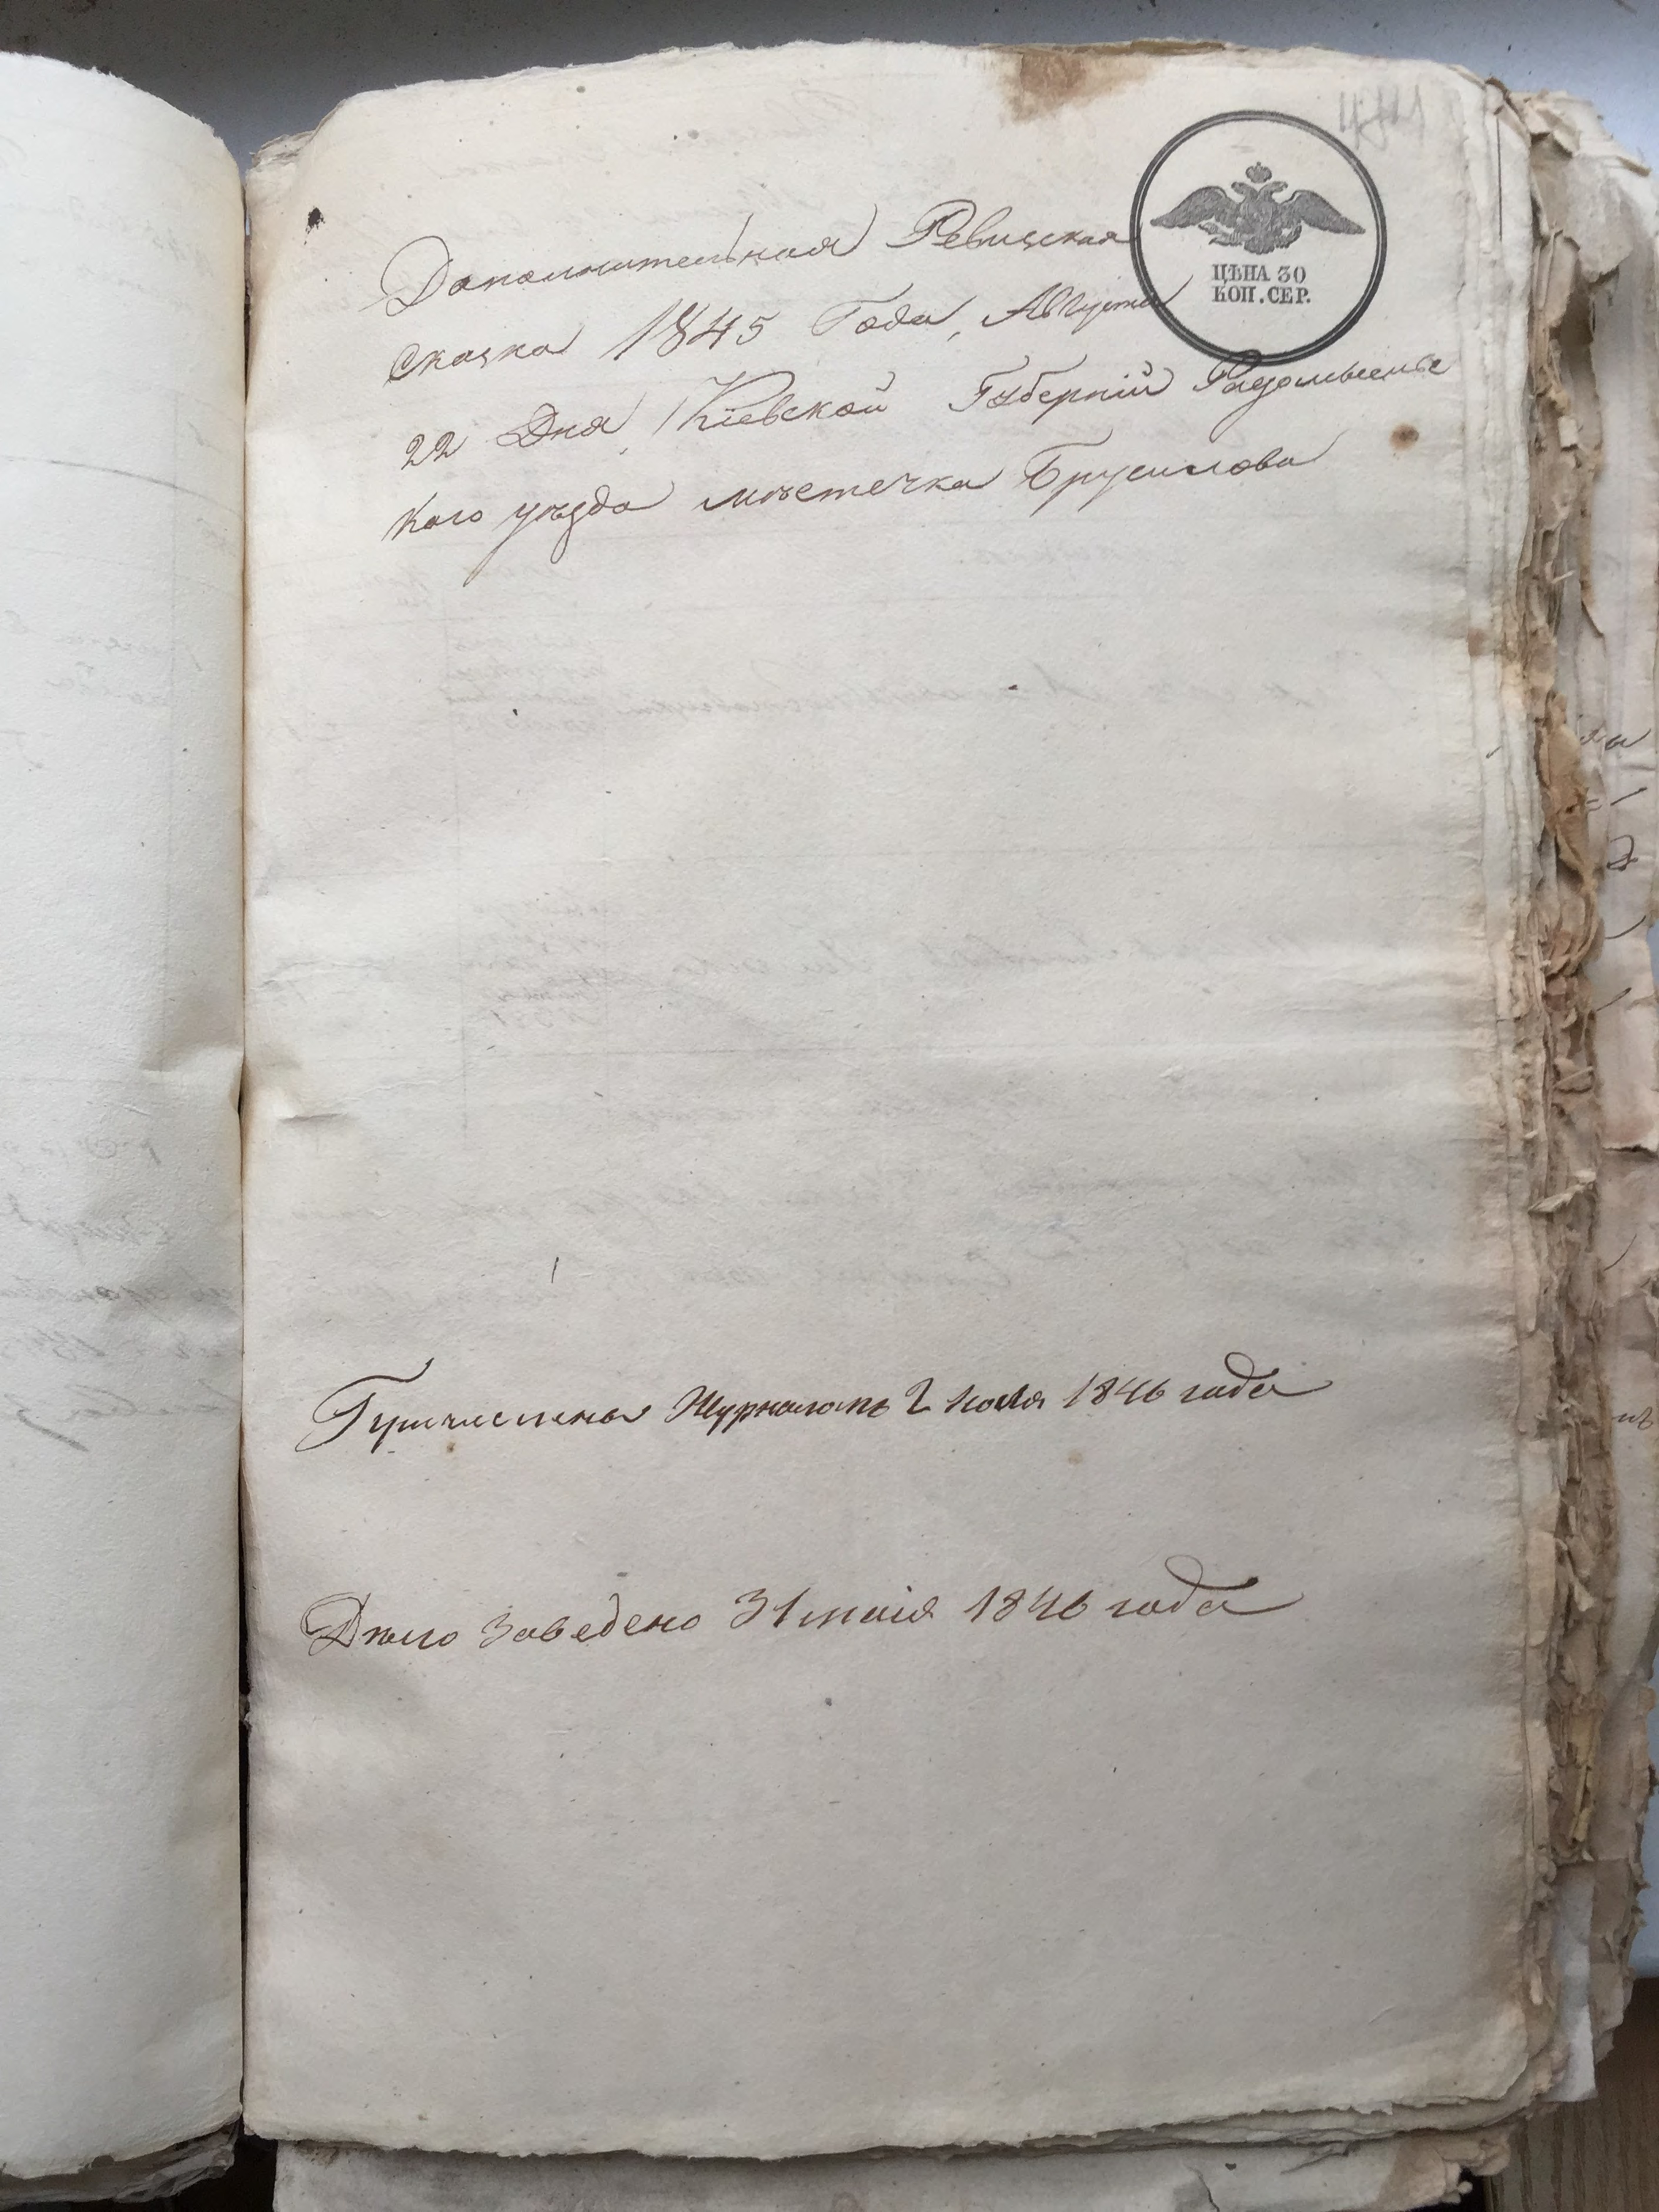 Дополнительная Ревизская
ЦѢНА 30
КОП. СЕР.
сказка 1845 Года, Августа
22 Дня, Кіевской Губерніи Радомысльс
кого уѣзда мѣстечка Брусилова
Причислены Журналомъ 2 1846 года
Дѣло заведено 31 маія 1846 года